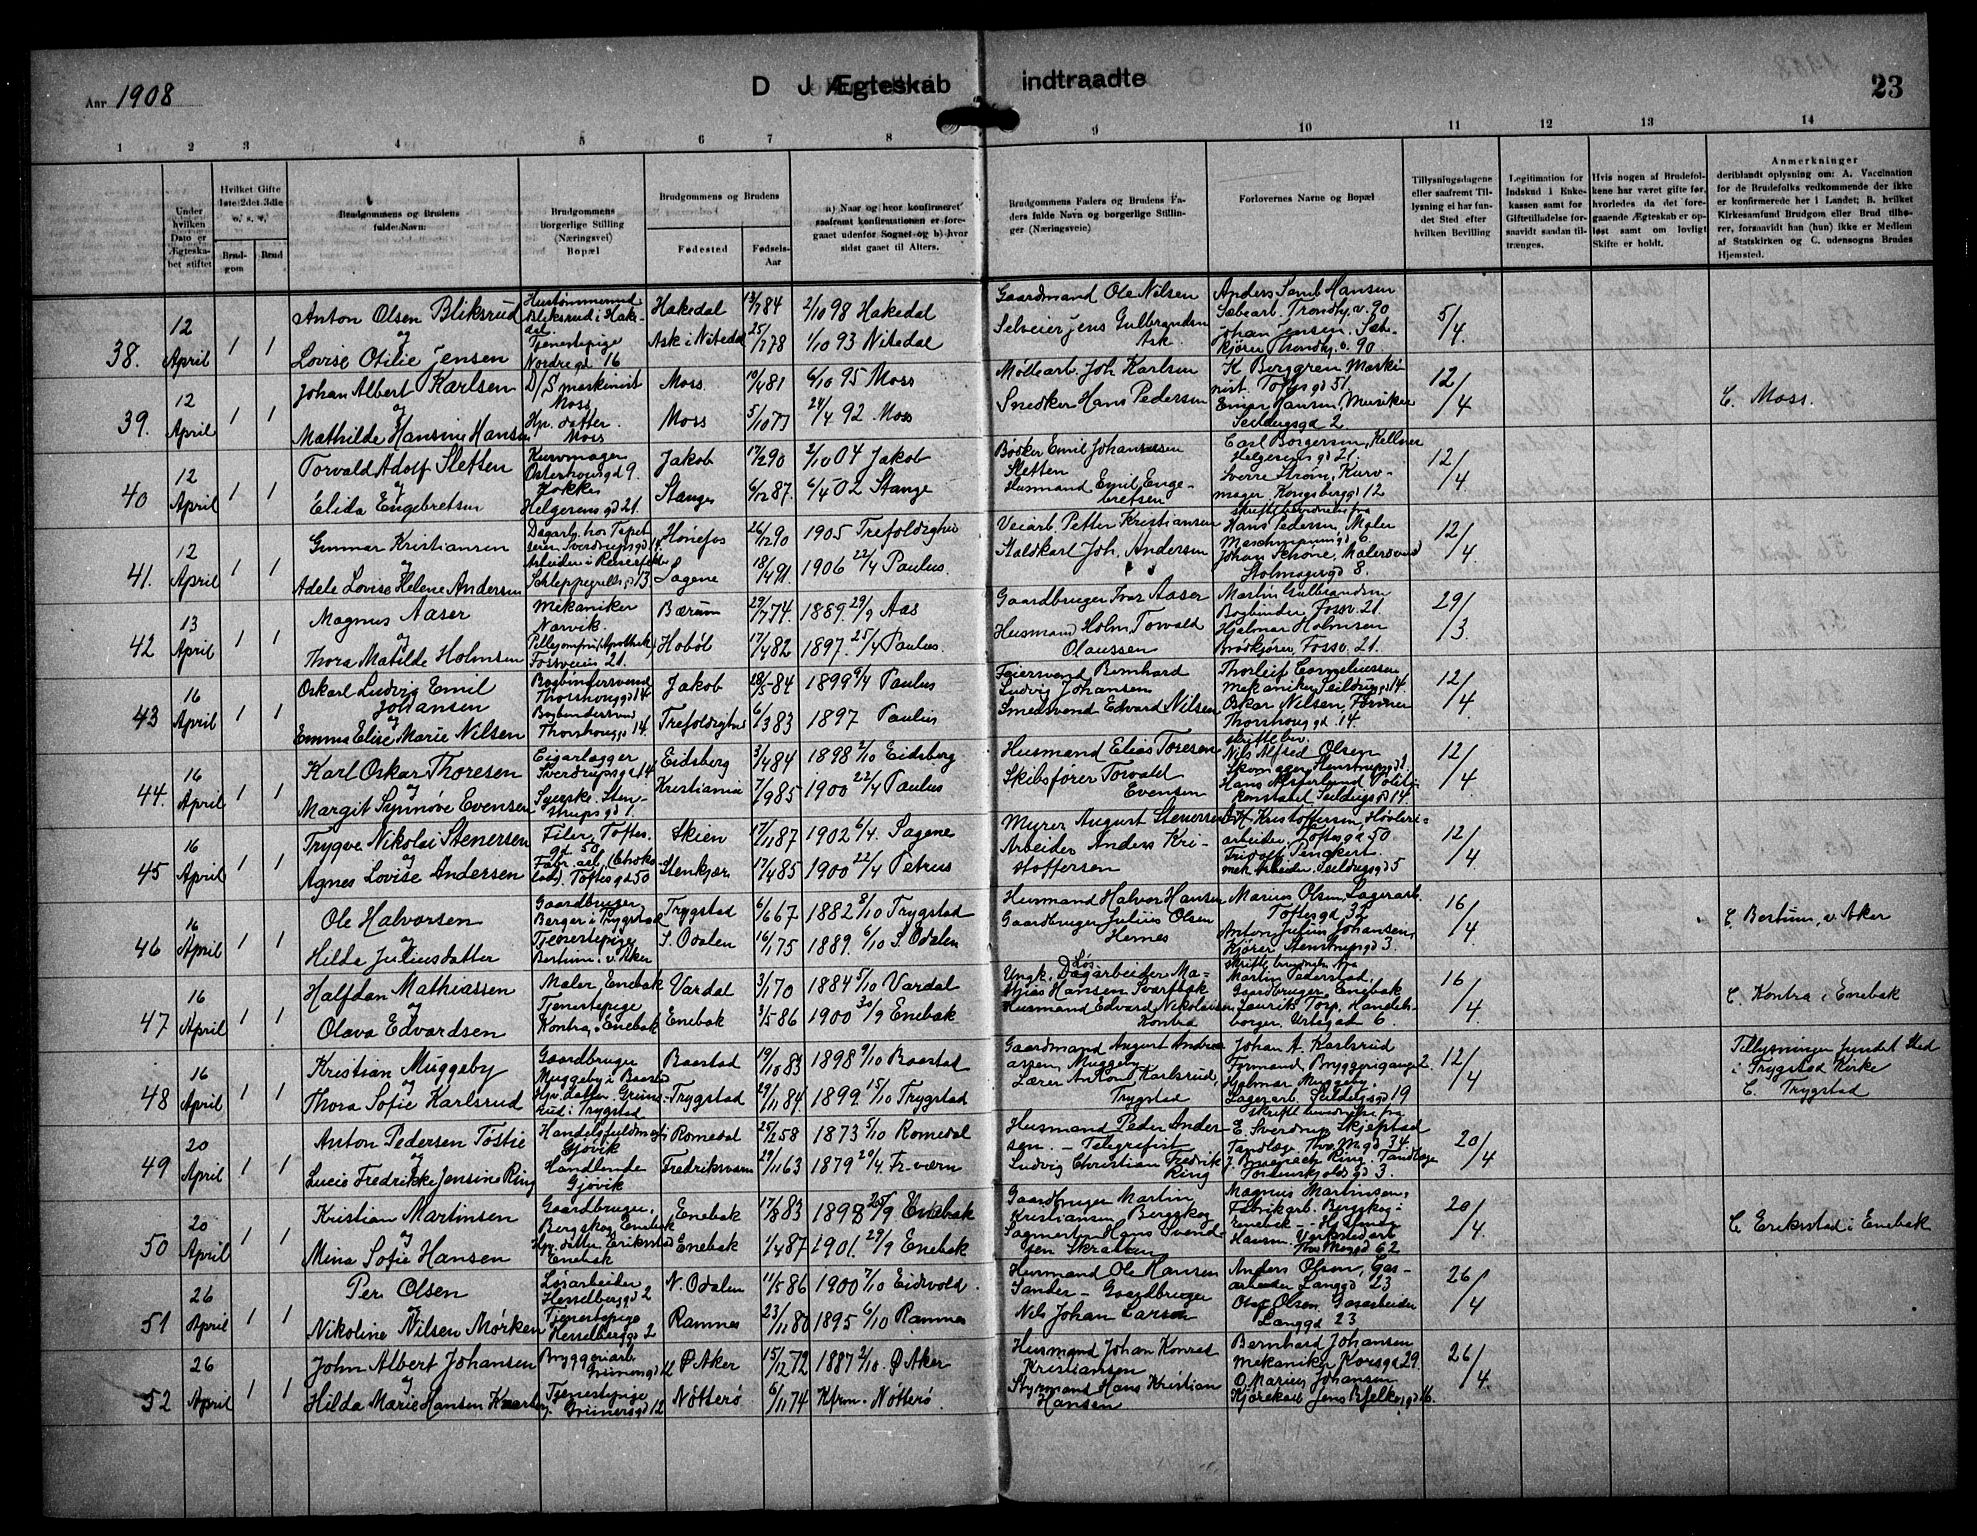 Aar 1908
D J Ægteskab indtraadte
23
1 2 3 4 5 6 7 8 9 10 11 12 13 14
Under hvilken Dato er Ægteskabet stiftet
Hvilket Gifte 1ste 2det 3die o. s. v.
Brudgom Brud
Brudgommens og Brudens fulde Navn:
Brudgommens borgerlige Stilling (Næringsvei) Bopæl
Brudgommens og Brudens
Fødested Fødsels-Aar
a) Naar og hvor konfirmeret saafremt konfirmationen er foregaaet udenfor Sognet og b) hvor sidst gaaet til Alters.
Brudgommens Faders og Brudens Faders fulde Navn og borgerlige Stillinger (Næringsveie)
Forlovernes Navne og Bopæl
Tillysningsdagene eller saafremt Tillysning ei har fundet Sted efter hvilken Bevilling
Legitimation for Indskud i Enkekassen samt for Giftetilladelse forsaavidt saadan tiltrænges.
Hvis nogen af Brudefolkene har været gifte før, hvorledes da det foregaaende Ægteskab er opløst samt om lovligt Skifte er holdt.
Anmerkninger
deriblandt oplysning om: A. Vaccination for de Brudefolks vedkommende der ikke er konfirmerede her i Landet; B. hvilket Kirkesamfund Brudgom eller Brud tilhører, forsaavidt han (hun) ikke er Medlem af Statskirken og C. udensogns Brudes Hjemsted.
38. 12 April 1 1
Anton Olsen Bliksrud
Bliksrud i Hakedal
Hakedal 84 2/10 98 Hakedal
Gaardmand Ole Nilsen
og
Lovise Otilie Jensen
Tjenestepige Nordregd 16
Ask i Nitedal 25/7 78 1/10 93 Nitedal
Selveier Jens Gulbrandsen Ask.
Johan Jensen
5/4.
39. 12 April 1 1
Johan Albert Karlsen
D/S maskinist Moss
Moss. 10/4 81 6/10 95 Moss
Joh. Karlsen
K Berggren Maskinist Toftesgd 51.
12/4
og
Mathilde Hansine Hansen
Hp. datter. Moss
Moss 5/10 24/4 92 Moss
Snedker Hans Pedersen
Einar Hansen, Musiker Seildugsgd 2
C. Moss.
40 12 April 1 1
Torvald Adolf Sletten
Kurvmager Osterhousgd 9.
Jakob 17/2 90 2/10 04 Jakob
Bøsker Emil Johannesen Sletten
Carl Borgersen, Kellner Helgesensgd 21.
12/4.
og
Elida Engebretsen
Kokke Helgesensgd 21.
Stange 6/12 87. 6/4 02 Stange
Husmand Emil Engebretsen
Sverre Strøm, Kurvmager. Kongsberggd 12
41. 12 April 1 1
Gunnar Kristiansen
Hønefos 26/12 90 1905 Trefoldighed
Veiarb. Petter Kristiansen
Hans Pedersen, Maler
12/4
Adele Lovise Helene Andersen
Schleppegrellsgd 13
Sagene 18/4 91. 1906 22/4 Paulus.
Staldkarl Joh. Andersen
Johan Schöne, Malersvend 8.
42 13 April 1 1
Magnus Aaser
Mekaniker Narvik.
Bærum 29/7 74. 1889 29/9 Aas
Gaardbruger Ivar Aaser
Martin Gulbrandsen Bogbinder, Fossv. 21.
29/3.
og
Thora Matilde Holmsen
Fossveien 21.
Hobøl 17/4 82 1897. 25/4 Paulus.
Husmand Holm, Torvald Olaussen
Hjalmar Holmsen Brødkjører, Fossv. 21.
43 16 April 1 1
Oskarl Ludvig Emil Johansen
Bogbindersvend Thorshouggd 14.
Jakob 84 1899 Paulus
Feiersvend Bernhard Ludvig Johansen
Thorleif Corneliussen mekaniker Seildugsgd 14.
12/4
og
Emma Elise Marie Nilsen
Thorshouggd 14.
Trefoldighed 6/3 83 1897 Paulus
Smedsvend Edvard Nilsen
Oskar Nilsen, Former Thorshouggd 14.
44. 16 April 1 1
Karl Oskar Thoresen
Cigarlagger Sverdrupsgd 14
Eidsberg 3/4 84 1898 2/10 Eidsberg
Husmand Elias Toresen
Nils Alfred Olsen
12/4
og
Margit Synnøve Evensen
Syerske. Stenstrupsgd 1.
Kristiania 7/9 85 1900 22/4 Paulus
Skibsfører Torvald Evensen
Politikonstabel Seildugsgd 14.
45 16 April 1 1
Trygve Nikolai Stenersen
Filer, Toftesgd 50
Skien 17/11 87 1902 6/4. Sagene
Myrer August Stenersen
Kristoffersen, Høvleriarbeider, Toftesgd 50
12/4
og
Agnes Lovise Andersen
Toftesgd 50
Stenkjær 17/4 85 1900 22/4 Petrus
Arbeider Anders Kristoffersen
mek Arbeider. Seildugsgd 5
46 16 April 1 1
Ole Halvorsen
Gaardbruger Berger i Trygstad
Trygstad 6/6 67 1882 8/10 Trygstad
Husmand Halvor Hansen
Marius Olsen, Lagerarb. Toftesgd 32
16/4.
og
Hilda Juliusdatter
Tjenestepige Bestum, v. Aker
S. Odalen 16/1 75 1889. 6/10 S. Odalen
Gaardbruger Julius Olsen Hernes
Anton Julius Johansen, Kjører Stenstrupsgd 3.
C. Bestum, v. Aker
47 16 April 1 1
Halfdan Mathiassen
Maler, Enebak
Vardal 3/1 70 1884 5/10 Vardal
Ungk. Løs Dagarbeider Mathias Hansen Svartbæk
Martin Pederstad, Gaardbruger, Enebak
16/4.
og
Olava Edvardsen
Tjenestepige Kontra, i Enebak
Enebak 3/5 86 1900 30/9 Enebak.
Husmand Edvard Nikolaisen Kontra
Laurits Torp, Handelsborger, Urtegad 6.
C. Kontra i Enebak
48 16 April 1 1
Kristian Muggeby
Gaardbruger Muggeby i Baastad
Baastad 19/10 83 1898 9/10 Baastad
Gaardmand August Andreasen, Muggeby
Johan A. Karlsrud Formand, Bryggerigangen 2.
12/4
og
Thora Sofie Karlsrud
Trygstad 29/11 84. 1899. 15/10 Trygstad
Lærer Anton Karlsrud, Trygstad
Hjalmar Muggeby. Lagerarb. Seildugsgd 19
Tillysningen fundet Sted i Trygstad Kirke
C. Trygstad
49 20 April 1 1
Anton Pedersen Tøstie
Handelsfuldmegt. Gjøvik
Romedal 25/2 58 1873 5/10 Romedal
Husmand Peder Andersen. — Telegrafist
E. Sverdrup Skjefstad Tandlæge Thv. Meyersgd 34.
20/4
og
Lucie Fredrikke Jensine Ring
Handlende Gjøvik
Fredriksværn 29/11 63 1879 29/4 Fr. værn
Ludvig Christian Fredrik Ring
Ring. Tandlæge 3.
50 20 April 1 1
Kristian Martinsen
Gaardbruger, Bergskog Enebak
Enebak 17/8 83 1898 25/9 Enebak
Gaardbruger Martin Kristiansen Bergskog
Magnus Martinsen, Fabrikarb. Bergskog i Enebak
20/4.
og
Mina Sofie Hansen
Hp. datter Erikstad Enebak
Enebak 1/4 87 1901. 29/9 Enebak
Hans Svendsen Skrakken
Hjalmar Hansen. Verkstedarb 62
C. Erikstad i Enebak
51 26 April 1 1
Per Olsen
Løsarbeider Hesselberggd 2
N. Odalen 11/5 86 1900 7/10 Eidsvold.
Husmand Ole Hansen Sander — Gaardbruger
Anders Olsen, Gasarbeider Langgd 23
26/4
og
Nikoline Nilsen Mørken
Tjenestepige Hesselberggd 2
Ramnes 23/11 80 1895 6/10 Ramnes
Nils Johan Larsen
Olaf Olsen. Gasarbeider Langgd 23
52 26 April 1 1
John Albert Johansen
Bryggeriarb. Grünersgd 12
Ø Aker 15/12 72 1887 2/10. Ø Aker
Husmand Johan Konrad Kristiansen
Bernhard Johansen Mekaniker Korsgd 29.
26/4.
og
Hilda Marie Hansen Knarberg
Tjenestepige Grünersgd 12
Nøtterø 6/11 74 Kfrm. Nøtterø
Styrmand Hans Kristian Hansen
O. Marius Johansen Kjørekarl Jens Bjelkesgd 16.